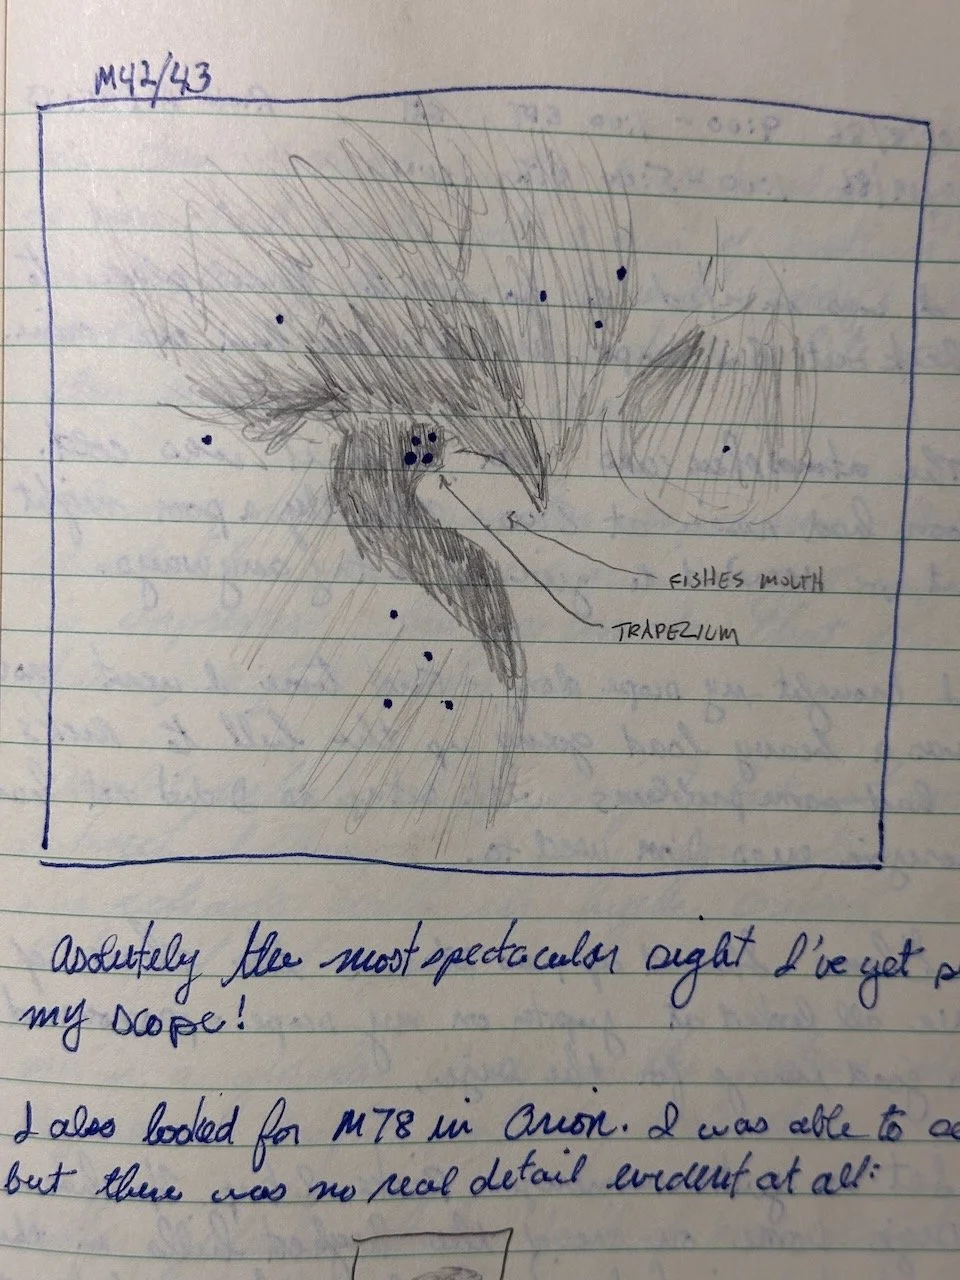 M42/43
FISHES MOUTH
TRAPEZIUM
Asolutely the most spectacular sight I've yet
my scope!
I also looked for M78 in Orion. I was able to
but there was no real detail evident at all: